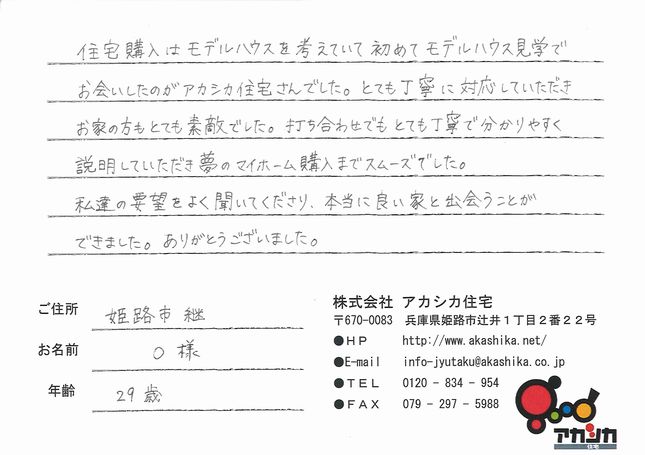 住宅購入はモデルハウスを考えていて初めてモデルハウス見学で
お会いしたのがアカシカ住宅さんでした。とても丁寧に対応していただき
お家の方もとても素敵でした。打ち合わせでもとても丁寧で分かりやすく
説明していただき夢のマイホーム購入までスムーズでした。
私達の要望をよく聞いてくださり、本当に良い家と出会うことが
できました。ありがとうございました。
ご住所 姫路市継
お名前 O様
年齢 29歳
株式会社 アカシカ住宅
〒670-0083 兵庫県姫路市辻井1丁目2番22号
●HP http://www.akashika.net/
●E-mail info-jyutaku@akashika.co.jp
●TEL 0120-834-954
●FAX 079-297-5988
アカシカ
住宅